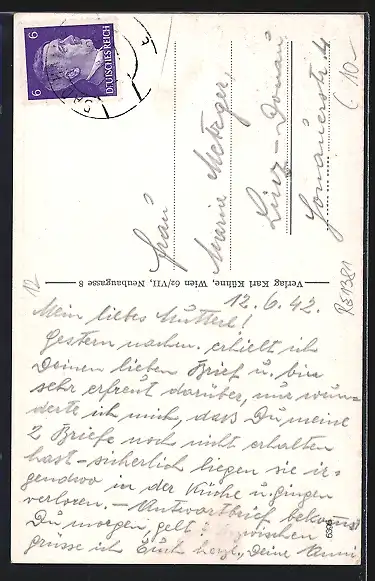 6
6
DEUTSCHES REICH
Frau
Marie Metzger,
Linz - Donau
4
Verlag Karl Kühne, Wien 62/VII, Neubaugasse 8
12.6.42.
Mein liebes Mutterl!
Gestern nachm. erhielt ich
Deinen lieben Brief u. bin
sehr erfreut darüber, nur wun-
derte ich mich, daß Du meine
2 Briefe noch nicht erhalten
hast - sicherlich liegen sie ir-
gendwo in der Küche u. gingen
verloren. - Antwortbrief bekommst
Du morgen, gelt? 
grüsse ich Euch herzl., Deine
6396
10-
RS1381
12